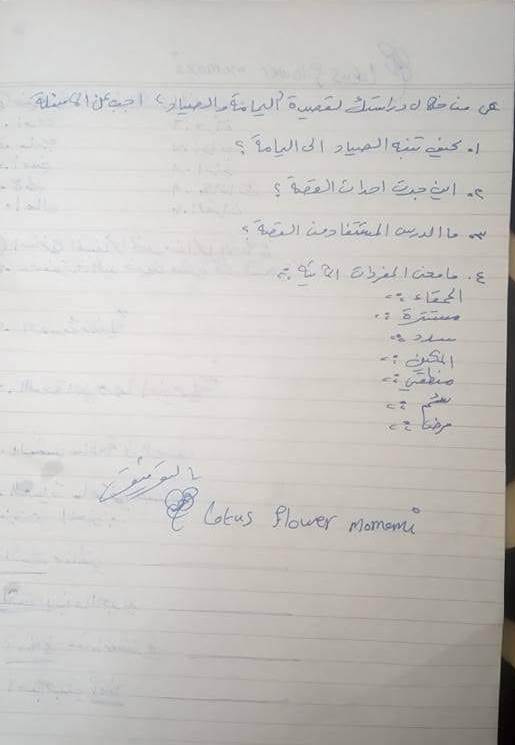 س/ من خلال دراستك لقصيدة "اليمامة والصياد" اجب عن الاسئلة
١. كيف تنبه الصياد الى اليمامة ؟
٢. اين جرت احداث القصة ؟
٣. ما الدرس المستفاد من القصة ؟
٤. ما معنى المفردات الاتية :-
الحمقاء :-
مستترة :-
سدد :-
المكين :-
منطقي :-
سهم :-
بالتوفيق
Lotus flower momemi